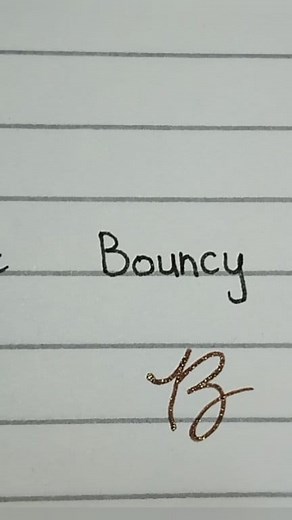 Bouncy
B